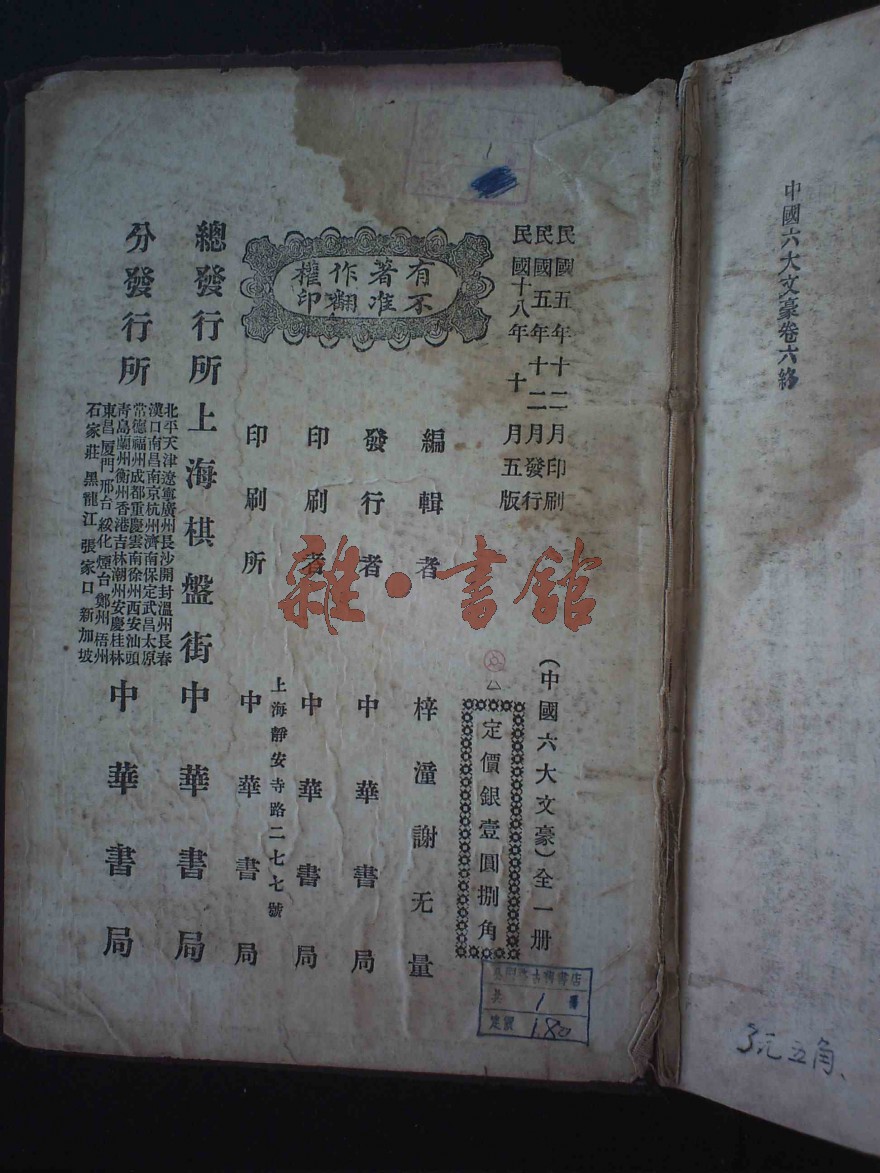 中國六大文豪卷六終
民國五年十二月印刷
民國五年十二月發行
民國十八年十月五版
(中國六大文豪)全一册
定價銀壹圓捌角
有著作權
不准翻印
編輯者 梓潼謝无量
發行者 中華書局
印刷者 中華書局
上海靜安寺路二七七號
印刷所 中華書局
總發行所 上海棋盤街 中華書局
分發行所 中華書局
北平天津遼寧廣州長沙開封溫州長春
漢口南昌南京杭州濟南保定武昌太原
常德福州成都重慶雲南徐州西安汕頭
青島蘭州衡州香港吉林潮州安慶桂林
東昌厦門邢台綏化煙台鄭州梧州
石家莊黑龍江張家口新加坡
雜·書館
古籍書店
共 1 冊
定價 1.80
3元五角、